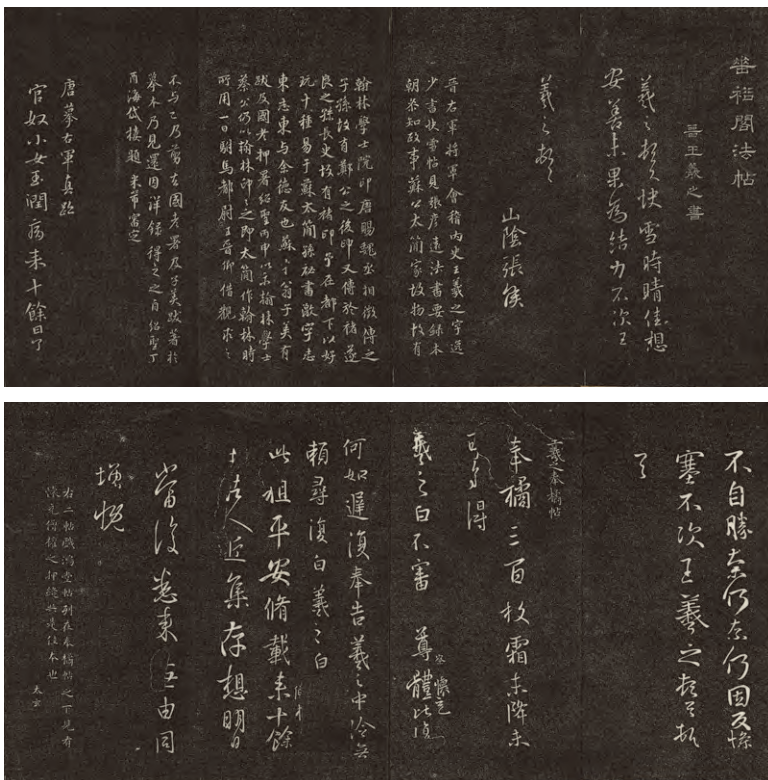 閣法帖
晉王羲之書
羲之頓首快雪時晴佳想
安善未果為結力不次王
羲之頓首
山陰張侯
晉右軍將軍會稽內史王羲之字逸
少書快雪帖見張彥遠法書要錄本
朝參知政事蘇公太簡家故物故有
翰林學士院印唐賜魏丞相徵傳之
子孫故有鄭公之後印又傳於褚遂
良之孫長史故有褚印予在都下以好
玩十種易于蘇太簡孫秘書激字志
東志東與余德友也蘇之翁子美有
跋及國老押署紹聖丙申以示翰林學士
蔡公仍以翰林印印之即太簡作翰林時
所用一日駙馬都尉王晉卿借觀求之
不与已乃剪去國老署及子美跋著於
摹本乃見還因詳錄得之之自紹聖丁
酉海岱樓題米芾審定
唐摹右軍真跡
官奴小女玉潤病來十餘日了
不自勝奈何奈何因反慘
塞不次王羲之頓首頓
首
羲之奉橘帖
奉橘三百枚霜未降未
可多得
羲之白不審 尊體比復
何如遲復奉告羲之中冷無
賴尋復白羲之白
此粗平安脩載來十餘
日諸人近集存想明日
當復悉來無由同
增慨
右二帖戲鴻堂帖刻在奉橘帖之下見有
懷充僧權之押縫此是佳本也